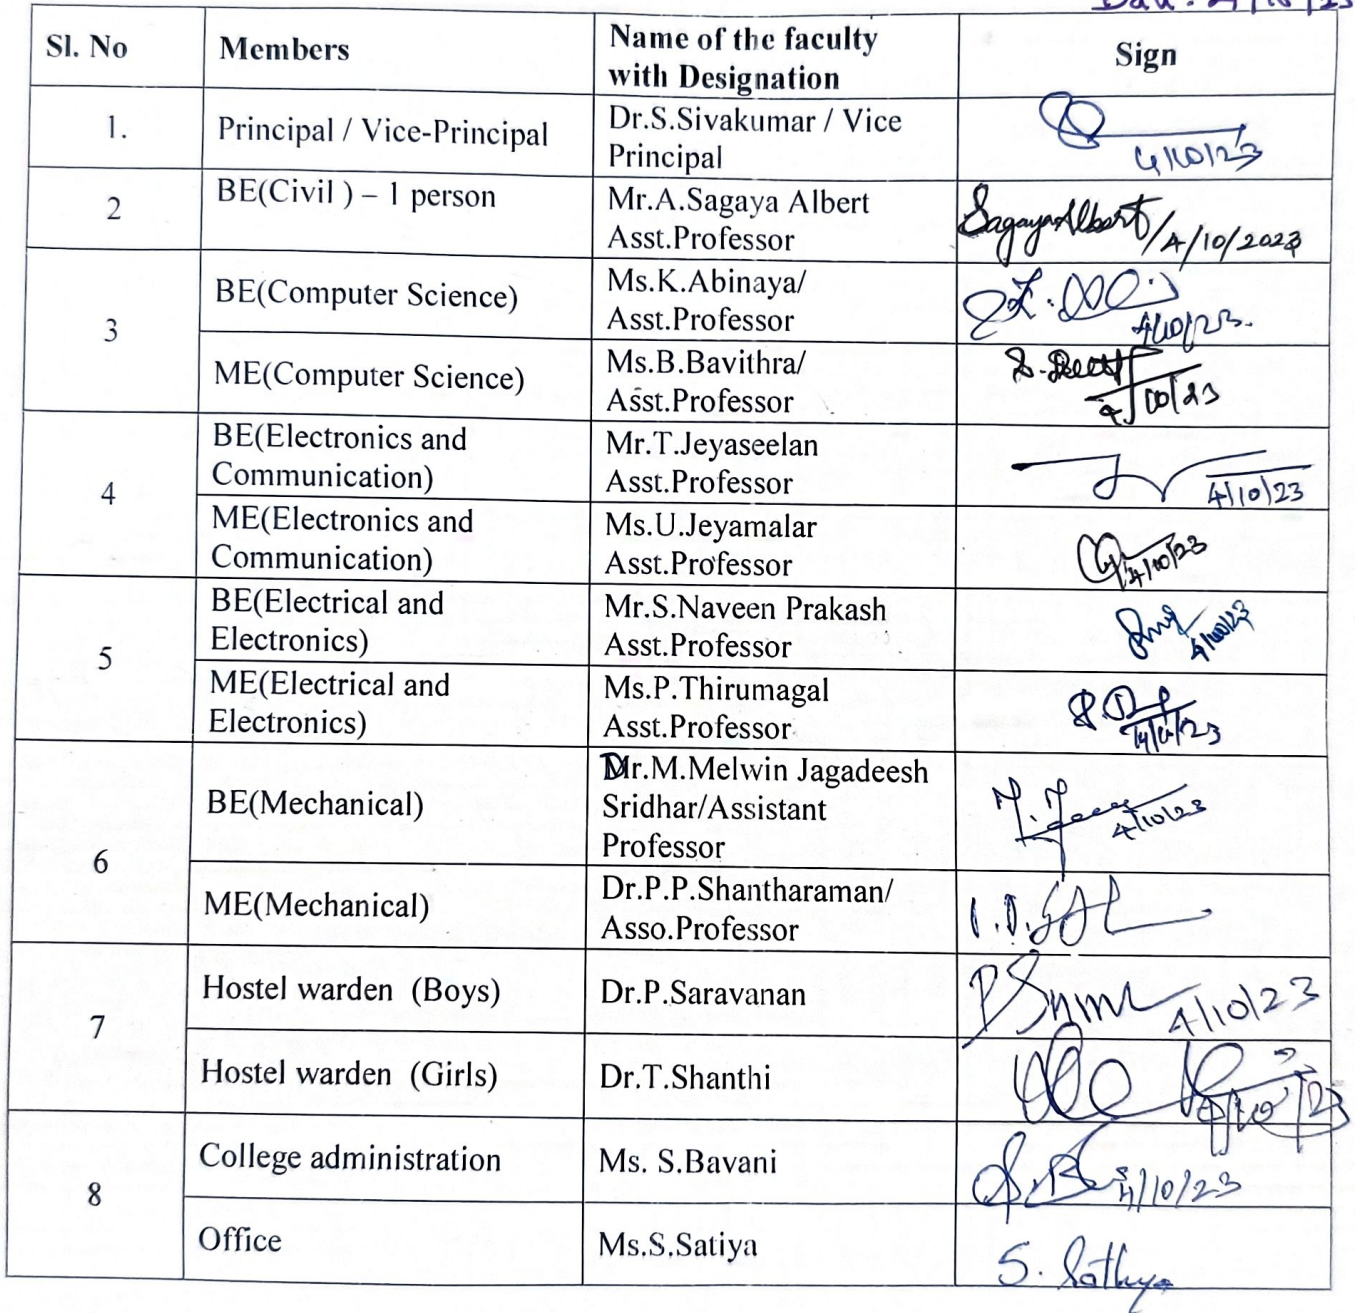 Date: 4/10/23
Sl. No Members Name of the faculty Sign
with Designation
1. Principal / Vice-Principal Dr.S.Sivakumar / Vice
Principal
4/10/23
2 BE(Civil ) – 1 person Mr.A.Sagaya Albert
Asst.Professor
SagayaAlbert/4/10/2023
3 BE(Computer Science) Ms.K.Abinaya/
Asst.Professor
4/10/23.
ME(Computer Science) Ms.B.Bavithra/
Asst.Professor
4/10/23
4 BE(Electronics and Mr.T.Jeyaseelan
Communication) Asst.Professor
4/10/23
ME(Electronics and Ms.U.Jeyamalar
Communication) Asst.Professor
4/10/23
5 BE(Electrical and Mr.S.Naveen Prakash
Electronics) Asst.Professor
4/10/23
ME(Electrical and Ms.P.Thirumagal
Electronics) Asst.Professor
6 BE(Mechanical) Dr.M.Melwin Jagadeesh
Sridhar/Assistant
Professor
4/10/23
ME(Mechanical) Dr.P.P.Shantharaman/
Asso.Professor
7 Hostel warden (Boys) Dr.P.Saravanan
4/10/23
Hostel warden (Girls) Dr.T.Shanthi
4/10/23
8 College administration Ms. S.Bavani
4/10/23
Office Ms.S.Satiya
S. Sathya